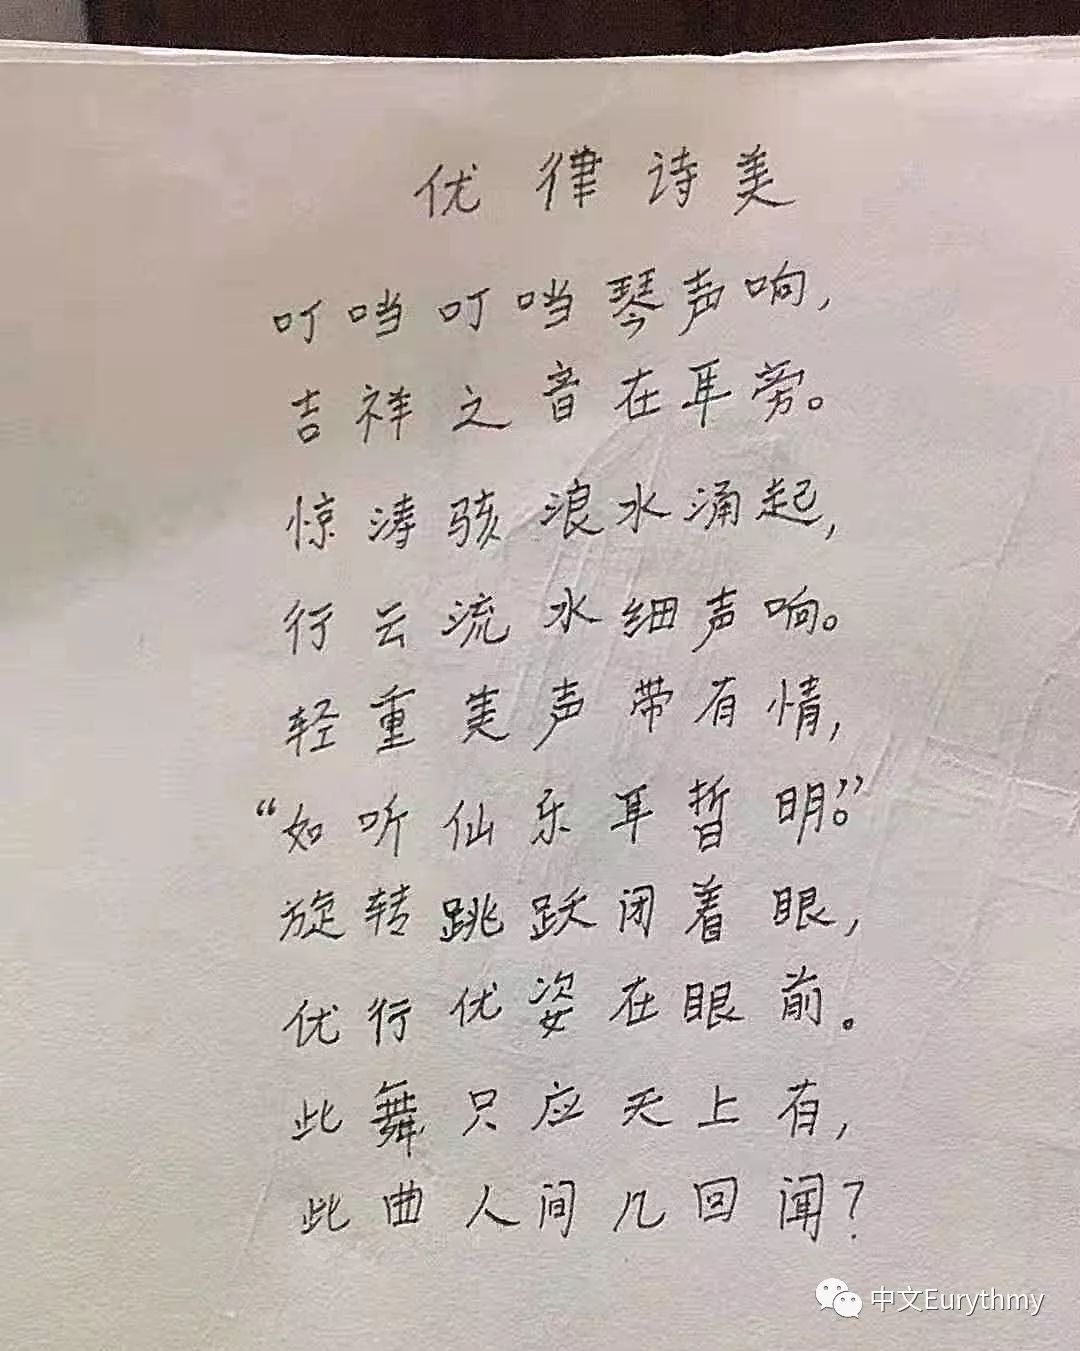 优律诗美
叮当叮当琴声响，
吉祥之音在耳旁。
惊涛骇浪水涌起，
行云流水细声响。
轻重美声带有情，
“如听仙乐耳暂明。”
旋转跳跃闭着眼，
优行优姿在眼前。
此舞只应天上有，
此曲人间几回闻？
中文Eurythmy